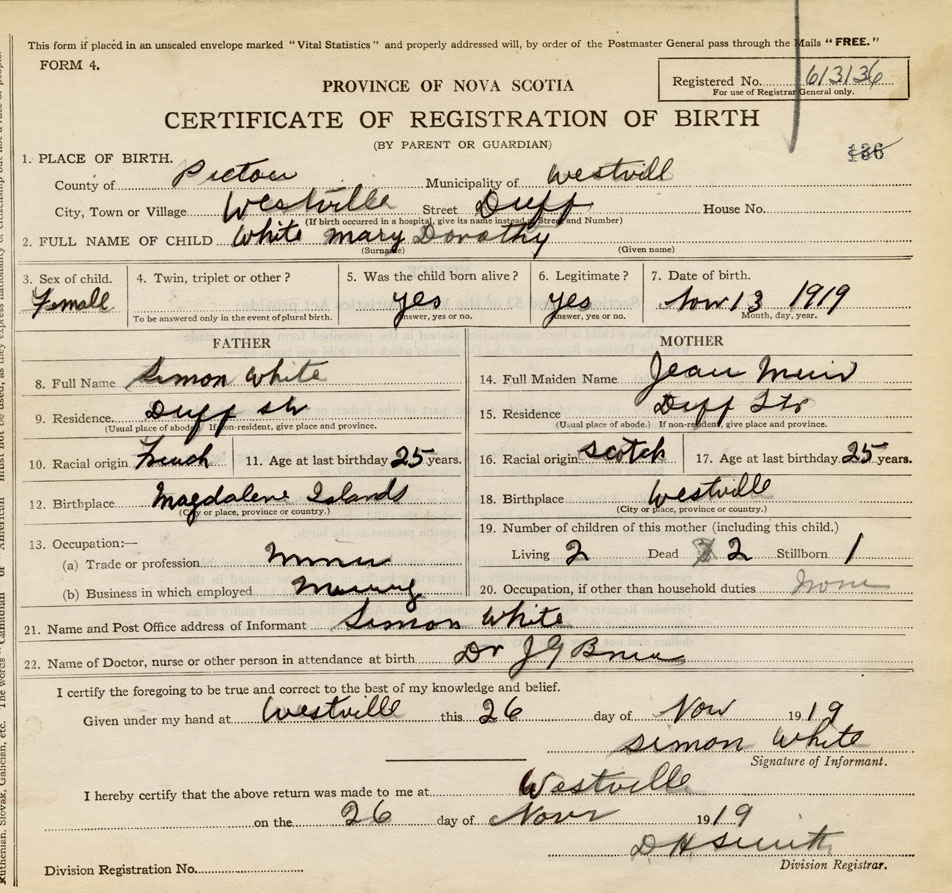 This form if placed in an unsealed envelope marked "Vital Statistics" and properly addressed will, by order of the Postmaster General pass through the Mails "FREE."
FORM 4.
Registered No. 613136
For use of Registrar General only.
PROVINCE OF NOVA SCOTIA
CERTIFICATE OF REGISTRATION OF BIRTH
(BY PARENT OR GUARDIAN)
136
1. PLACE OF BIRTH.
County of Pictou Municipality of Westvill
City, Town or Village Westville Street Duff House No.
(If birth occurred in a hospital, give its name instead of Street and Number)
2. FULL NAME OF CHILD White Mary Dorothy
(Surname) (Given name)
3. Sex of child. 4. Twin, triplet or other? 5. Was the child born alive? 6. Legitimate? 7. Date of birth.
Femall yes yes Nov 13 1919
To be answered only in the event of plural birth. Answer, yes or no. Answer, yes or no. Month, day, year.
FATHER MOTHER
8. Full Name Simon White 14. Full Maiden Name Jean Muir
9. Residence Duff str 15. Residence Duff Str
(Usual place of abode) If non-resident, give place and province. (Usual place of abode.) If non-resident, give place and province.
10. Racial origin French 11. Age at last birthday 25 years. 16. Racial origin Scotch 17. Age at last birthday 25 years.
12. Birthplace Magdalene Islands 18. Birthplace Westville
(City or place, province or country.) (City or place, province or country.)
19. Number of children of this mother (including this child.)
13. Occupation:—
Living 2 Dead 2 Stillborn 1
(a) Trade or profession Miner
(b) Business in which employed Mining 20. Occupation, if other than household duties None
21. Name and Post Office address of Informant Simon White
22. Name of Doctor, nurse or other person in attendance at birth Dr J G
I certify the foregoing to be true and correct to the best of my knowledge and belief.
Given under my hand at Westville this 26 day of Nov 1919
Simon White
Signature of Informant.
I hereby certify that the above return was made to me at Westville
on the 26 day of Novr 1919
D H Smith
Division Registration No. Division Registrar.